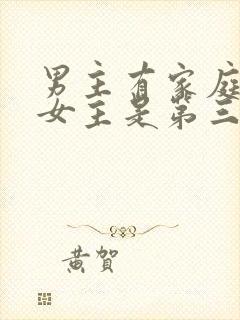 男主有家庭
女主是第三
黄贺